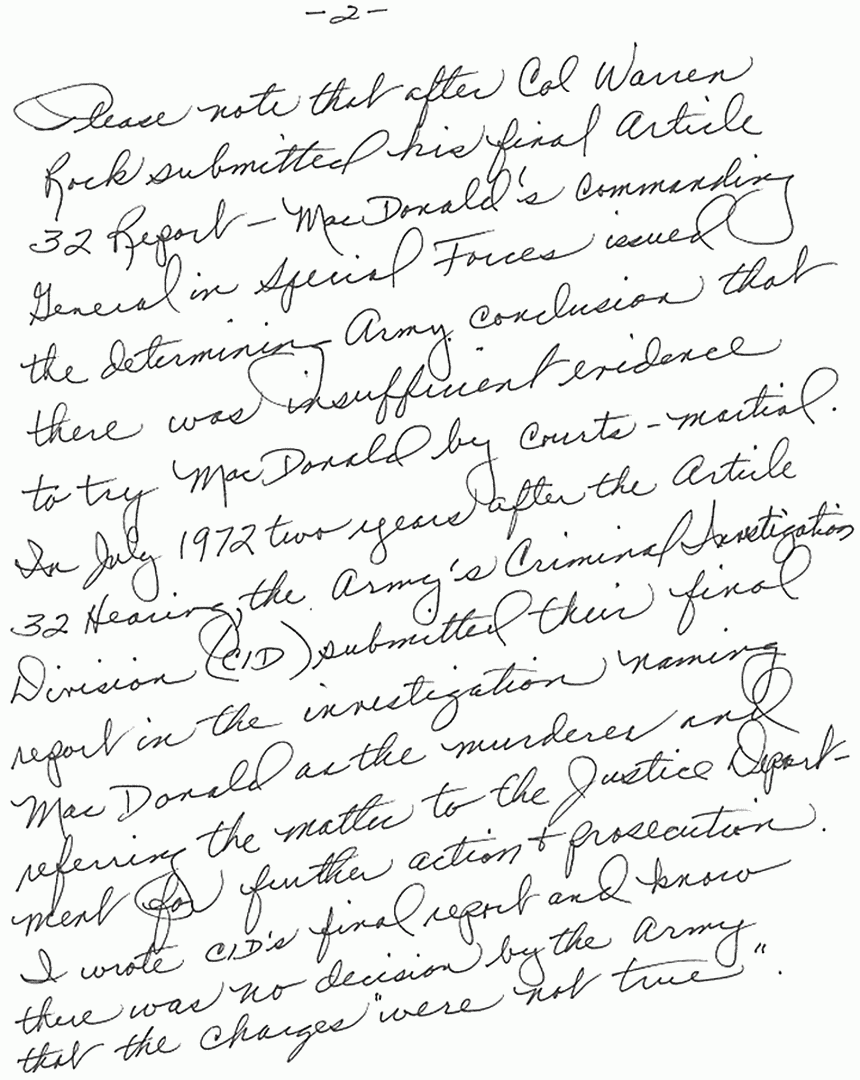 -2-
Please note that after Col Warren
Rock submitted his final Article
32 Report - MacDonald's commanding
General in Special Forces issued
the determining Army conclusion that
there was insufficient evidence
to try MacDonald by courts-martial.
In July 1972 two years after the Article
32 Hearing, the Army's Criminal Investigation
Division (CID) submitted their final
report in the investigation naming
MacDonald as the murderer and
referring the matter to the Justice Depart-
ment for further action & prosecution.
I wrote CID's final report and know
there was no decision by the Army
that the charges "were not true".